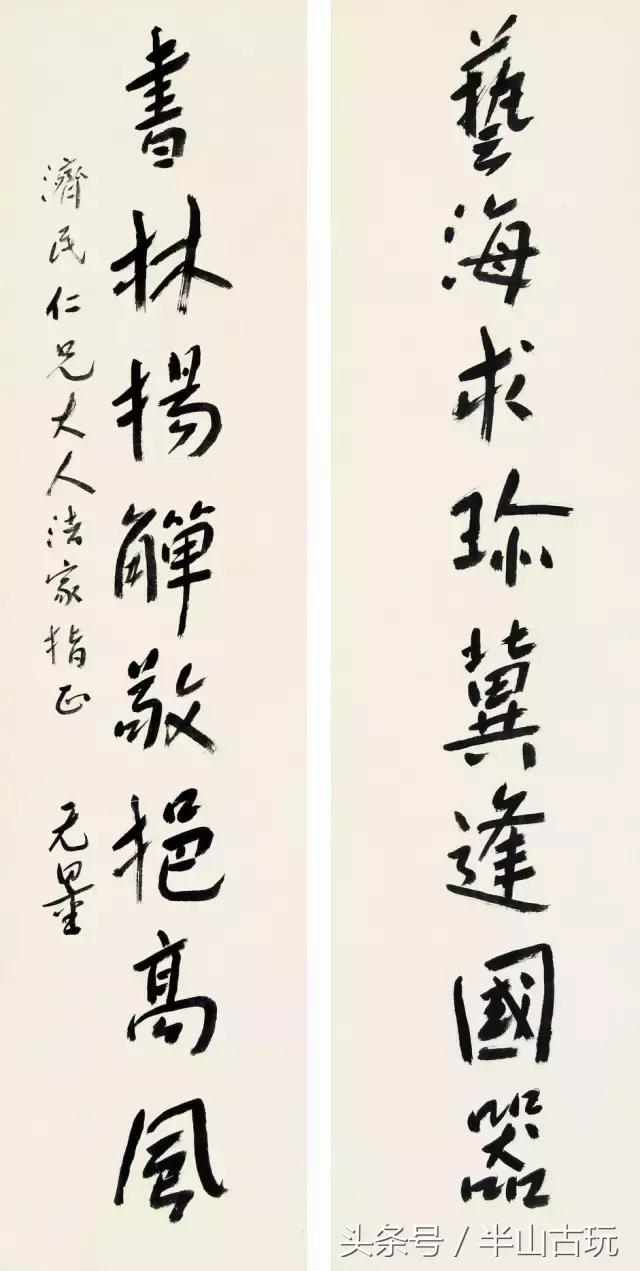 藝海求珍冀逢國器
書林揚觶敬挹高風
濟民仁兄大人法家指正
无量
头条号/半山古玩